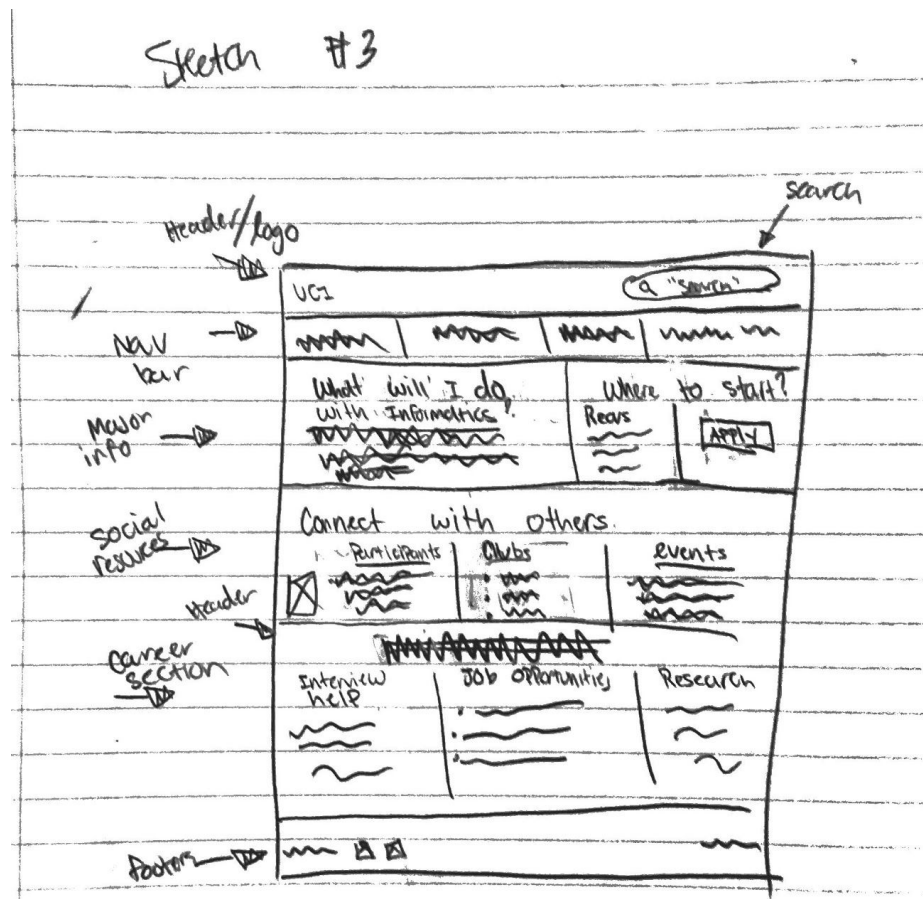 Sketch #3
search
Header/logo
UCI
"search"
Nav
bar
What will I do
with Informatics?
Where to start?
Major
info
Reqs
APPLY
Connect with others
social
resources
Participants
Clubs
events
Header
career
section
Interview
help
JOB Opportunities
Research
footers